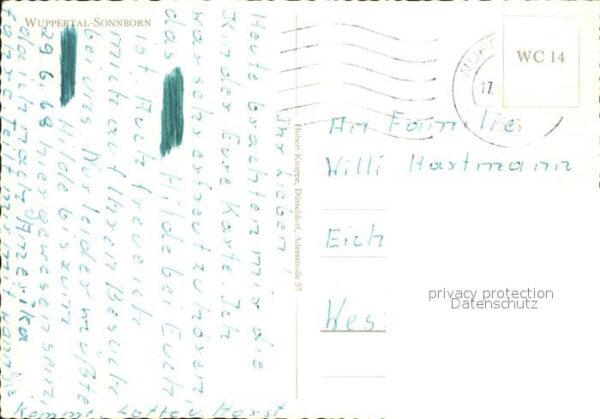 WUPPERTAL-SONNBORN
Ihr Lieben!
Heute brachten mir die
Kinder Eure Karte. Ich
war sehr erfreut zu hören,
das Hilde bei Euch
ist. Auch freue ich
mich auf Ihren Besuch
bei uns. Nur leider müßte
Hilde bis zum
29.6.68 her gewesen sein,
da ich nach Amerika
Kommt Lotte u Horst
Hubert Knieppe, Düsseldorf, Adersstraße 57
17.
WC 14
An Familie
Willi Hartmann
Eich
Wes
privacy protection
Datenschutz